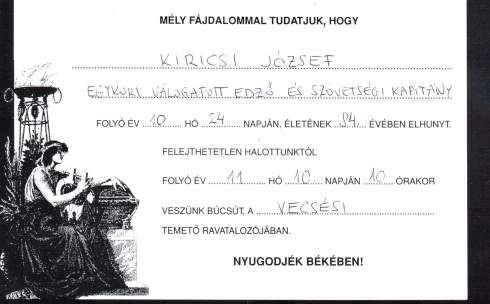 MÉLY FÁJDALOMMAL TUDATJUK, HOGY
KIRICSI JÓZSEF
EGYKORI VÁLOGATOTT EDZŐ ÉS SZÖVETSÉGI KAPITÁNY
FOLYÓ ÉV 10. HÓ 24. NAPJÁN, ÉLETÉNEK 84. ÉVÉBEN ELHUNYT.
FELEJTHETETLEN HALOTTUNKTÓL
FOLYÓ ÉV 11 HÓ 10. NAPJÁN 10 ÓRAKOR
VESZÜNK BÚCSÚT, A VECSÉSI
TEMETŐ RAVATALOZÓJÁBAN.
NYUGODJÉK BÉKÉBEN!